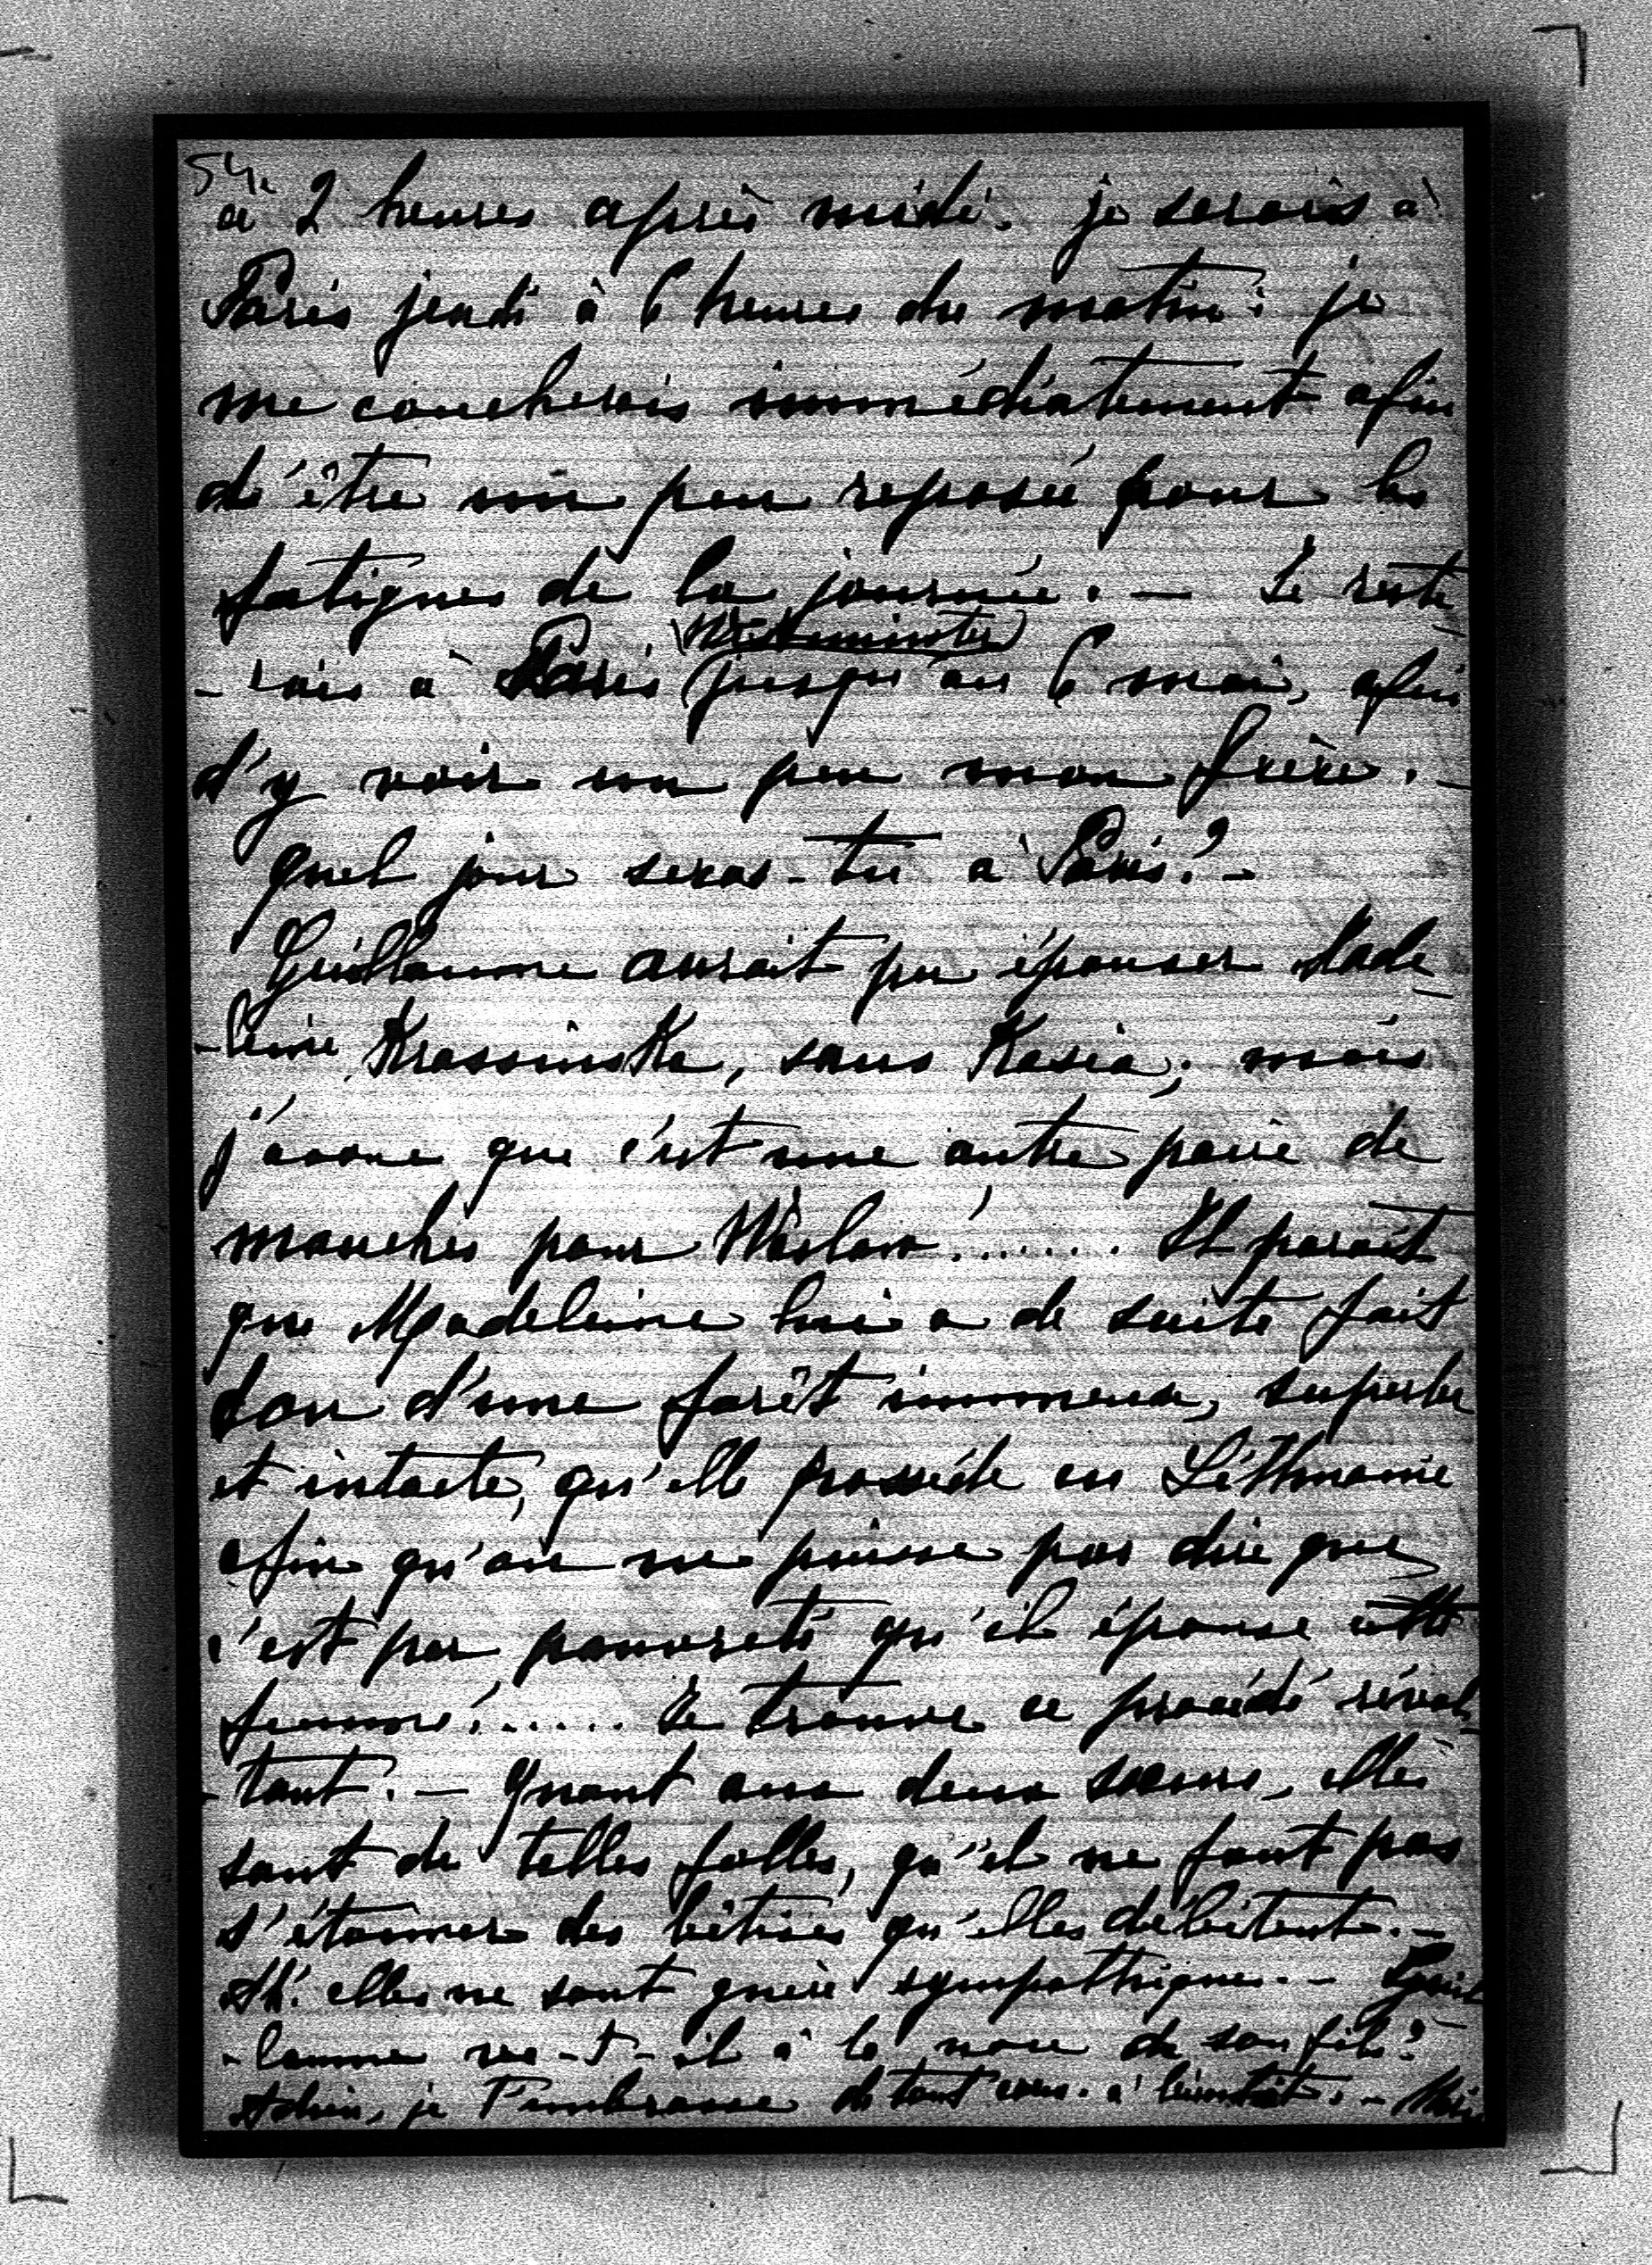 54.
à 2 heures après midi. je serais à
Paris jeudi à 6 heures du matin: je
me coucherais immédiatement afin
d'être un peu reposée pour les
fatigues de la journée. — Je reste-
Westminster
-rais à Paris (jusqu'au 6 mai, afin
d'y voir un peu mon frère. —
Quel jour seras-tu à Paris? —
Guillaume aurait pu épouser Made-
-leine Krassinska, sans Kasia; mais
j'avoue que c'est une autre paire de
manches pour Waslaw!....... Il paraît
que Madeleine lui a de suite fait
don d'une forêt immense, superbe
et intacte, qu'elle possède en Lithuanie
afin qu'on ne puisse pas dire que
c'est par pauvreté qu'il épouse cette
femme!...... Je trouve ce procédé révol-
-tant. — Quant aux deux sœurs, elles
sont de telles folles, qu'il ne faut pas
s'étonner des bêtises qu'elles débitent. —
Ah! elles ne sont guère sympathiques. — Guil-
-laume va-t-il à la noce de son fils?
Adieu, je t'embrasse de tout cœur. à bientôt. —